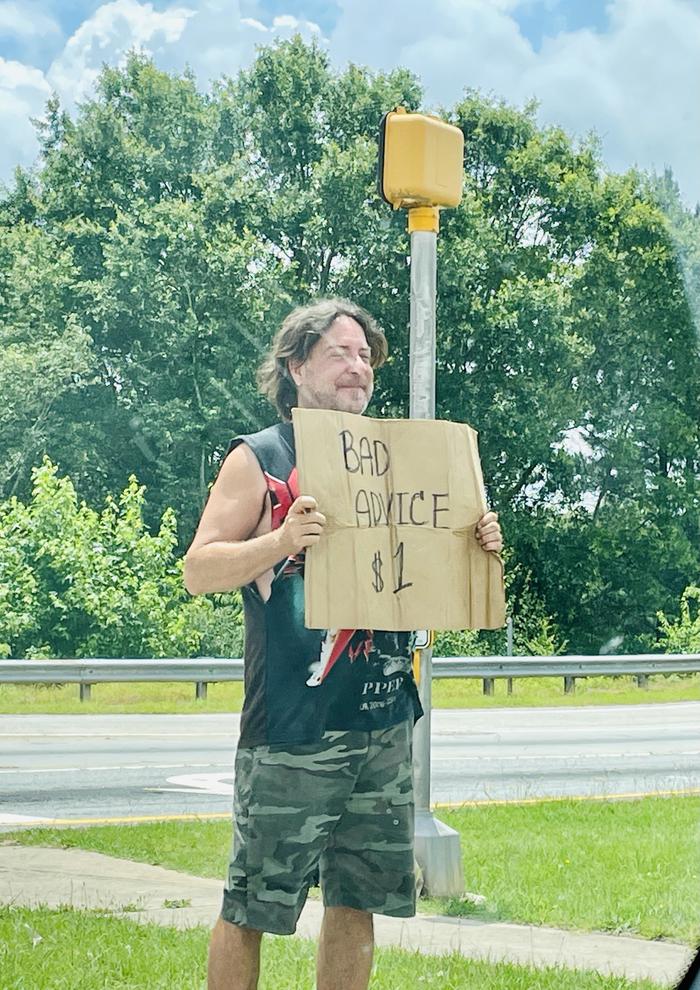 BAD
ADVICE
$1
PPER